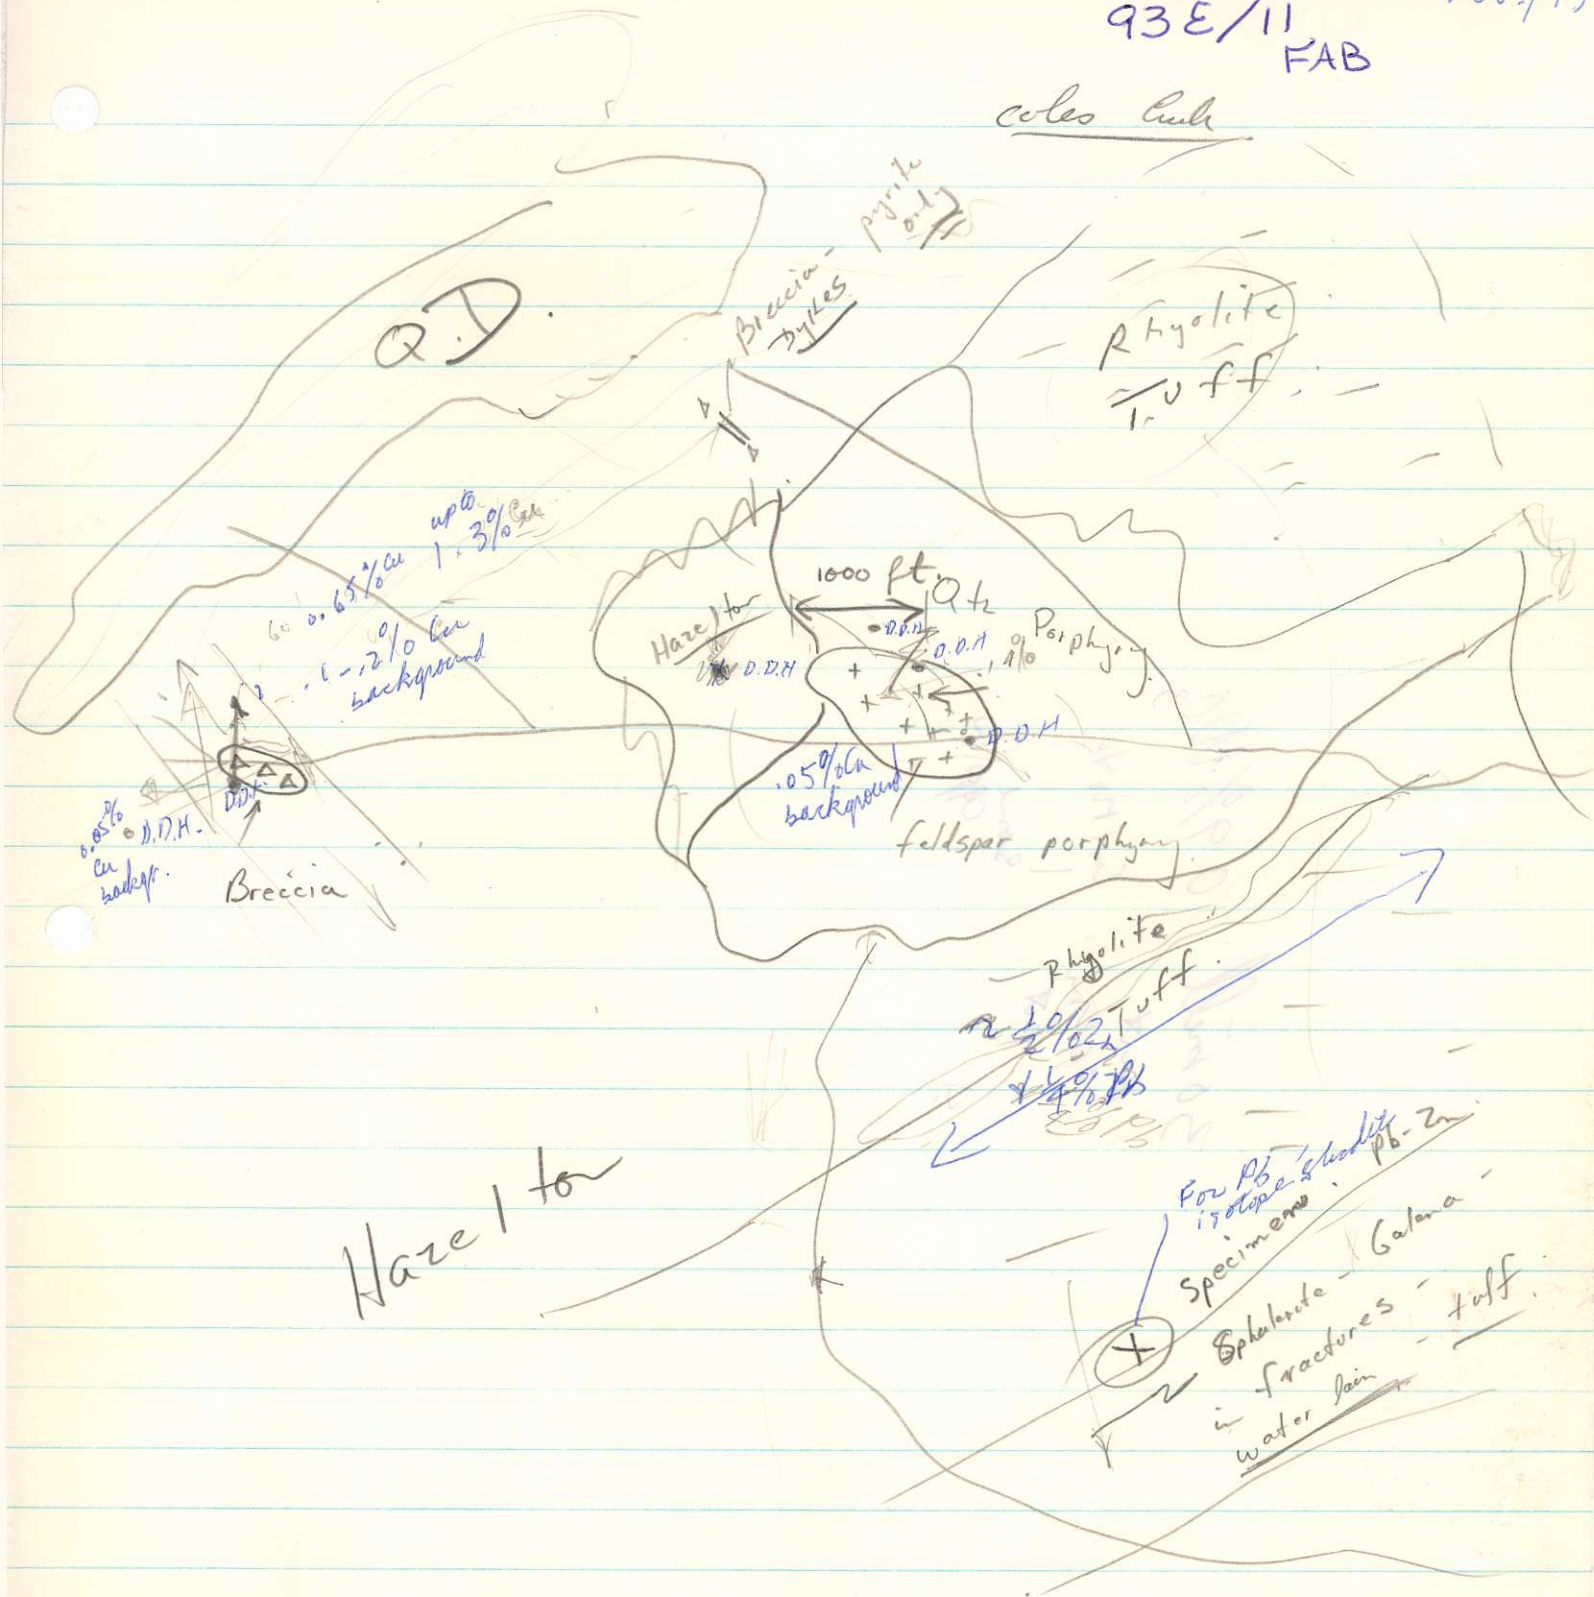 93E/11
FAB
coles Creek
Breccia -
Dykes
pyrite
only
Q.D.
Rhyolite
Tuff
up to
1.3% Cu
0.65% Cu
.1-.2% Cu
background
1000 ft.
Qtz
Porphyry
Hazelton
D.D.H
D.D.H
D.D.H
.1%
D.D.H
.05% Cu
background
feldspar porphyry
0.05%
Cu
backgr.
D.D.H.
D.D.H.
Breccia
Rhyolite
Tuff.
½% Zn
¼% Pb
Hazelton
For Pb
isotope
Specimen.
Pb-Zn
Sphalerite - Galena -
in fractures -
water lain - tuff.